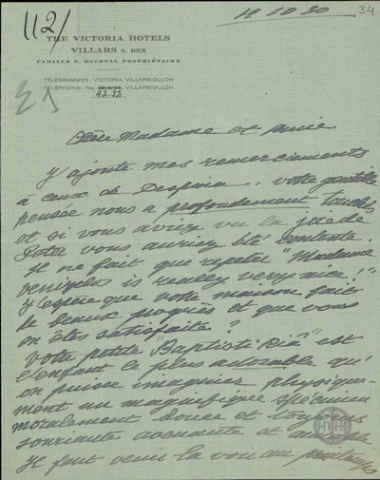 112)
12.10.30
34
THE VICTORIA HOTELS
VILLARS S. BEX
FAMILLE S. HOCHULI, PROPRIÉTAIRE
TÉLÉGRAMMES: VICTORIA VILLARS/OLLON
TÉLÉPHONE: No. VILLARS/OLLON
42.92
Chère Madame et amie
J'ajoute mes remerciements
à ceux de Despina. votre gentille
pensée nous a profondement touchés
et si vous aviez vu la joie de
Peter vous auriez été contente.
Il ne fait que repeter "Madame
Venizelos is really very nice!"
J'espère que votre maison fait
de beaux progrès et que vous
en êtes satisfaite?
votre petite "Baptisti" est
l'enfant le plus adorable qu'
on puisse imaginer physique-
ment un magnifique spécimen
moralement douce et toujours
souriante avenante et
Il faut venir la voir au printemps